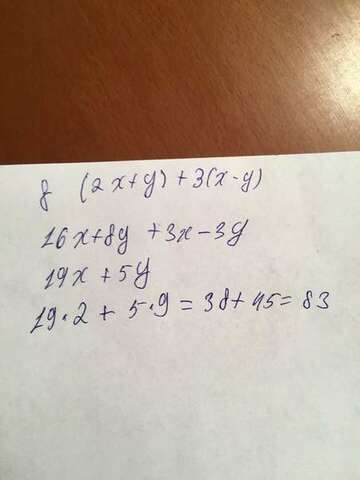 8 (2x+y)+3(x-y)
16x+8y +3x-3y
19x+5y
19·2+5·9=38+45=83